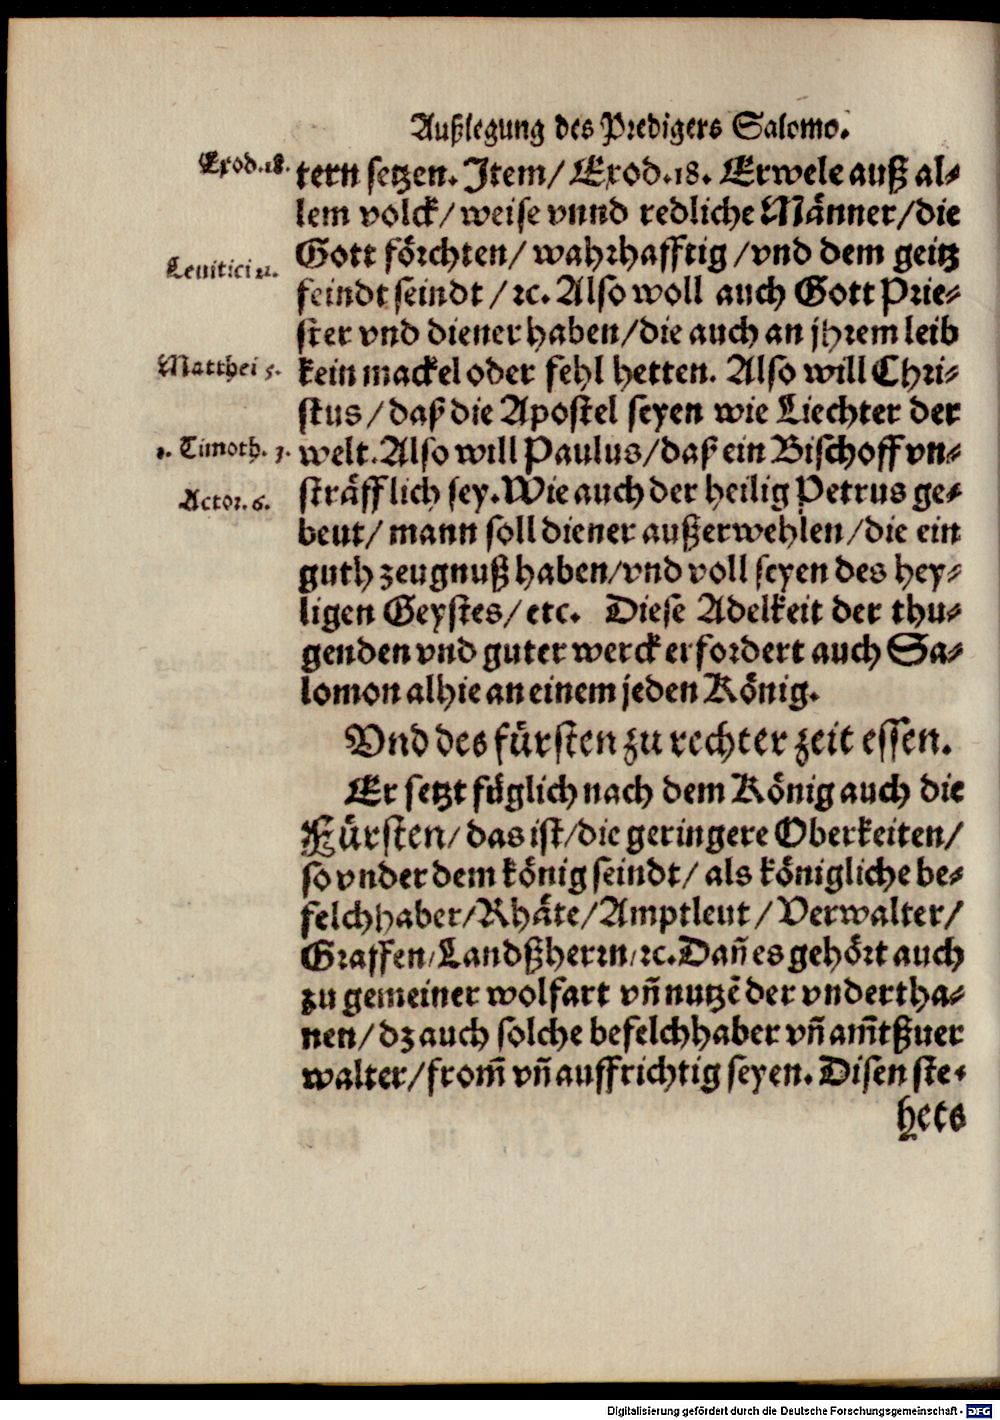 Außlegung des Predigers Salomo.
Exod.18.
tern setzen. Item/ Exod.18. Erwele auß al⸗
lem volck/ weise vnnd redliche Männer/die
Gott förchten/ wahrhafftig /vnd dem geitz
Leuitici 21.
feindt seindt /ꝛc. Also woll auch Gott Prie⸗
ster vnd diener haben/die auch an jhrem leib
Matthei 5.
kein mackel oder fehl hetten. Also will Chri⸗
stus /daß die Apostel seyen wie Liechter der
1. Timoth. 3.
welt. Also will Paulus/daß ein Bischoff vn⸗
Actor. 6.
sträfflich sey. Wie auch der heilig Petrus ge⸗
beut/ mann soll diener außerwehlen/die ein
guth zeugnuß haben/vnd voll seyen des hey⸗
ligen Geystes/ etc. Diese Adelkeit der thu⸗
genden vnd guter werck erfordert auch Sa⸗
lomon alhie an einem jeden König.
Vnd des fürsten zu rechter zeit essen.
Er setzt füglich nach dem König auch die
Fürsten/ das ist/die geringere Oberkeiten/
so vnder dem könig seindt/ als königliche be⸗
felchhaber/Rhäte/Amptleut/Verwalter/
Graffen/Landßherrn/ꝛc. Dañ es gehört auch
zu gemeiner wolfart vñ nutzẽ der vndertha⸗
nen/dz auch solche befelchhaber vñ am̃tßuer
walter/from̃ vñ auffrichtig seyen. Disen ste⸗
hets
Digitalisierung gefördert durch die Deutsche Forschungsgemeinschaft - DFG